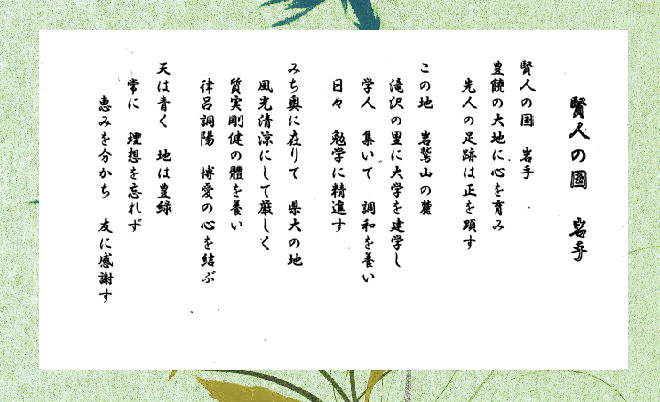 賢人の國　岩手
賢人の国　岩手
豊饒の大地に心を育み
先人の足跡は正を顕す
この地　岩鷲山の麓
滝沢の里に大学を建学し
学人　集いて　調和を養い
日々　勉学に精進す
みち奥に在りて　県大の地
風光清涼にして厳しく
質実剛健の體を養い
律呂調陽　博愛の心を結ぶ
天は青く　地は豊緑
常に　理想を忘れず
恵みを分かち　友に感謝す